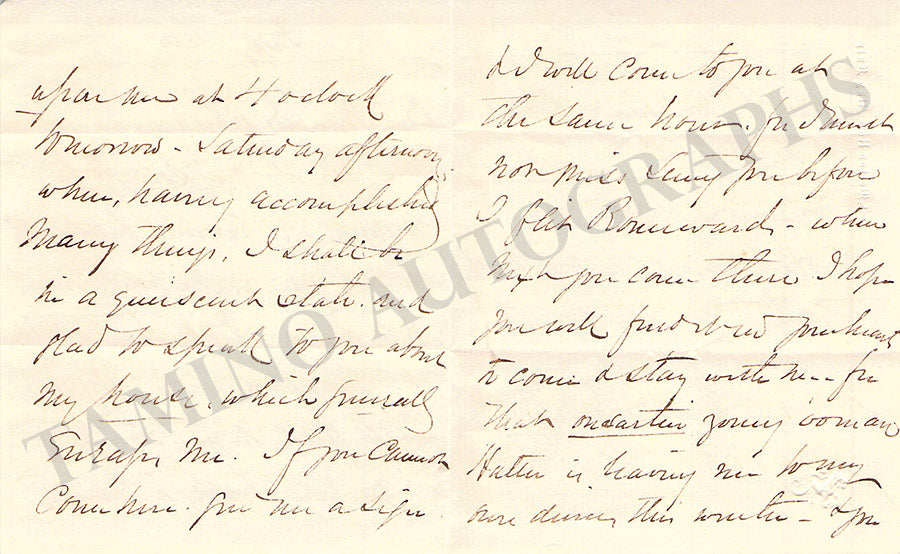 upon me at 4 oclock
tomorrow - Saturday afternoon
when, having accomplished
Many things, I shall be
in a quiescent state. and
glad to speak to you about
my house, which generally
Enraps me. If you Cannot
Come here. give me a sign
& I will Come to you at
the same hour. for I must
not miss seeing you before
I flit Romewards - when
next you come there I hope
you will find it in your heart
to come & stay with me - for
that young woman
Hatter is leaving me to my
own during this winter - & you
TAMINO AUTOGRAPHS